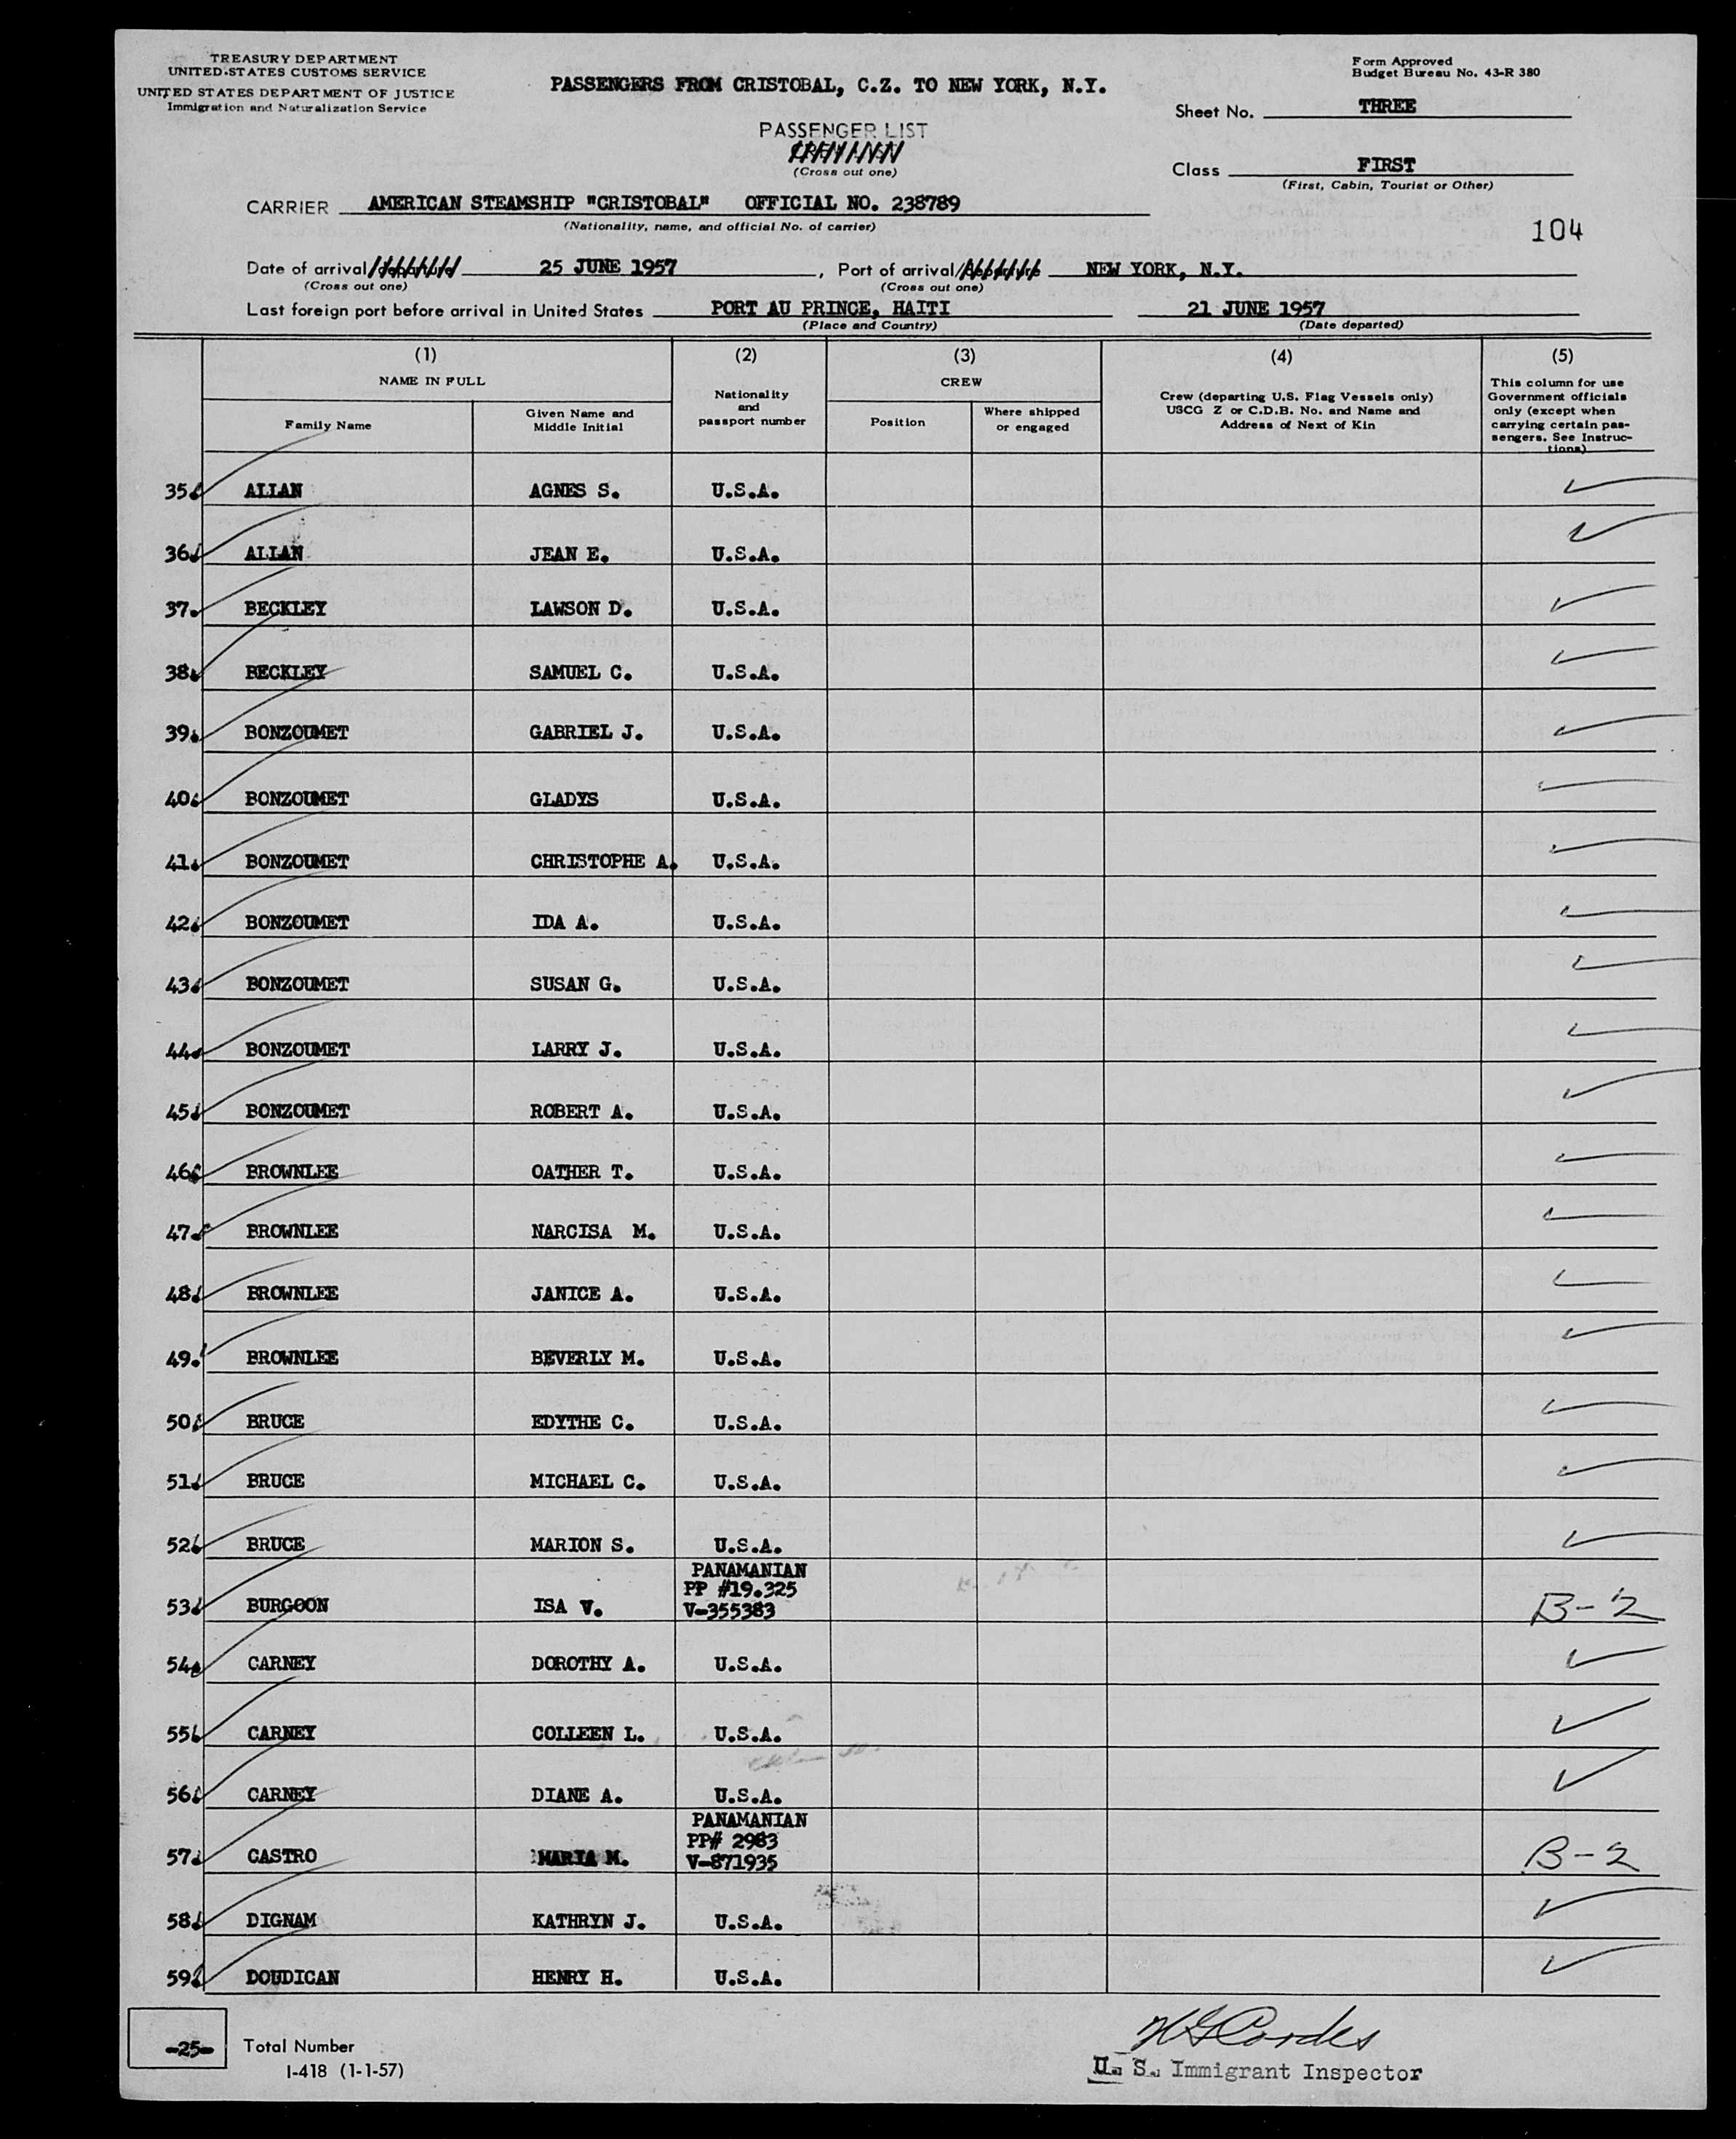 TREASURY DEPARTMENT
UNITED STATES CUSTOMS SERVICE
UNITED STATES DEPARTMENT OF JUSTICE
Immigration and Naturalization Service
PASSENGERS FROM CRISTOBAL, C.Z. TO NEW YORK, N.Y.
Form Approved
Budget Bureau No. 43-R 380
Sheet No. THREE
PASSENGER LIST
(Cross out one)
Class FIRST
(First, Cabin, Tourist or Other)
CARRIER AMERICAN STEAMSHIP "CRISTOBAL" OFFICIAL NO. 238789
(Nationality, name, and official No. of carrier)
104
Date of arrival/departure 25 JUNE 1957, Port of arrival/departure NEW YORK, N.Y.
(Cross out one) (Cross out one)
Last foreign port before arrival in United States PORT AU PRINCE, HAITI 21 JUNE 1957
(Place and Country) (Date departed)
(1) (2) (3) (4) (5)
NAME IN FULL
Family Name
Given Name and Middle Initial
Nationality and passport number
CREW
Position
Where shipped or engaged
Crew (departing U.S. Flag Vessels only)
USCG Z or C.D.B. No. and Name and
Address of Next of Kin
This column for use
Government officials
only (except when
carrying certain pas-
sengers. See Instruc-
tions)
35. ALLAN AGNES S. U.S.A.
36. ALLAN JEAN E. U.S.A.
37. BECKLEY LAWSON D. U.S.A.
38. BECKLEY SAMUEL C. U.S.A.
39. BONZOUMET GABRIEL J. U.S.A.
40. BONZOUMET GLADYS U.S.A.
41. BONZOUMET CHRISTOPHE A. U.S.A.
42. BONZOUMET IDA A. U.S.A.
43. BONZOUMET SUSAN G. U.S.A.
44. BONZOUMET LARRY J. U.S.A.
45. BONZOUMET ROBERT A. U.S.A.
46. BROWNLEE OATHER T. U.S.A.
47. BROWNLEE NARCISA M. U.S.A.
48. BROWNLEE JANICE A. U.S.A.
49. BROWNLEE BEVERLY M. U.S.A.
50. BRUCE EDYTHE C. U.S.A.
51. BRUCE MICHAEL C. U.S.A.
52. BRUCE MARION S. U.S.A.
PANAMANIAN
PP #19.325
53. BURGOON ISA V. V-355383 B-2
54. CARNEY DOROTHY A. U.S.A.
55. CARNEY COLLEEN L. U.S.A.
56. CARNEY DIANE A. U.S.A.
PANAMANIAN
PP# 2983
57. CASTRO MARIA M. V-871935 B-2
58. DIGNAM KATHRYN J. U.S.A.
59. DOUDICAN HENRY H. U.S.A.
-25- Total Number
I-418 (1-1-57)
Cordes
U. S. Immigrant Inspector